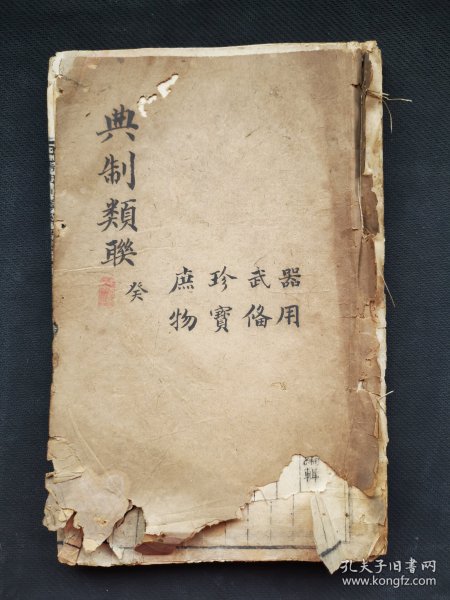 典制類聯
癸
器用
武俻
珍寶
庶物
輯
孔夫子旧书网
www.kongfz.com